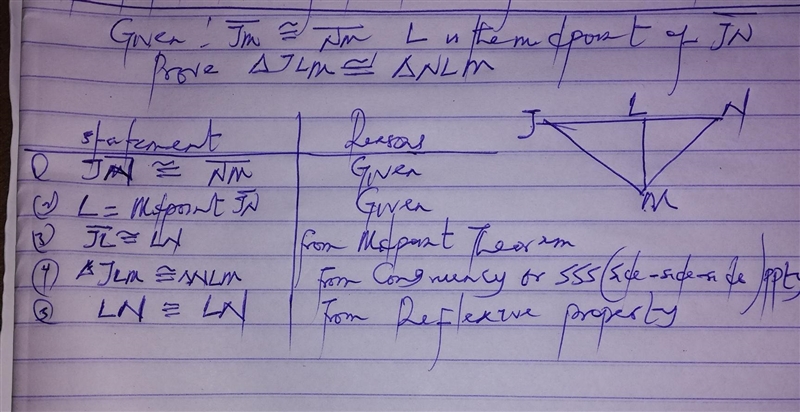 Given : JM ≅ NM L is the midpoint of JN
Prove ΔJLM ≅ ΔNLM
Statement Reasons
① JM ≅ NM Given
② L = Midpoint JN Given
③ JL ≅ LN from Midpoint Theorem
④ ΔJLM ≅ ΔNLM from Congruency or SSS (side-side-side) ppty
⑤ LN ≅ LN from Reflexive property
J L N
M